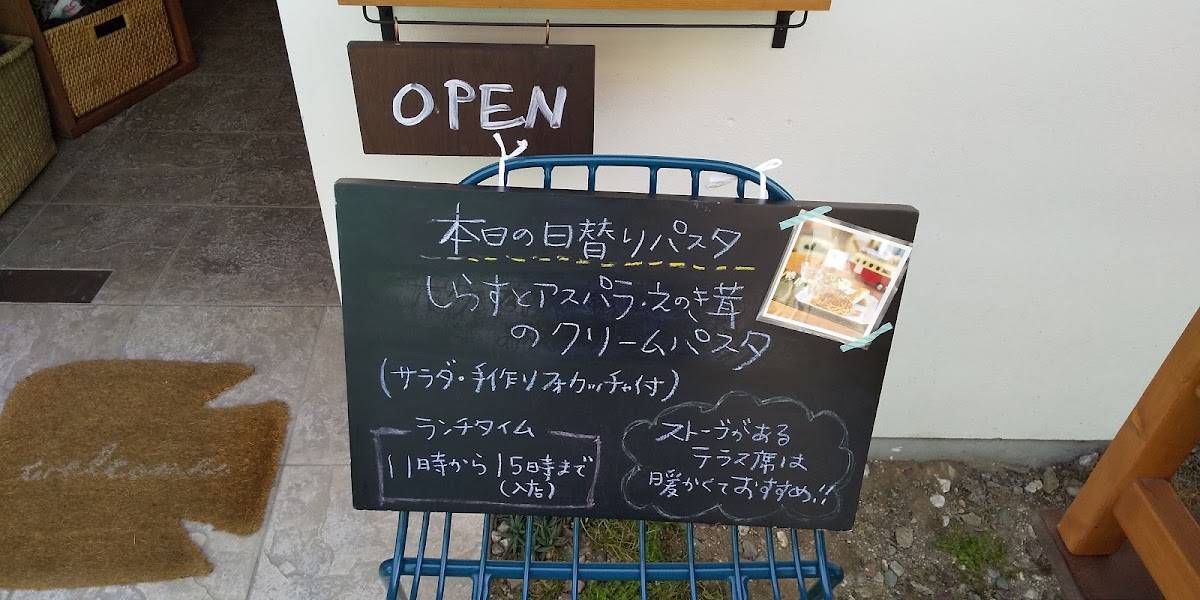 OPEN
本日の日替りパスタ
しらすとアスパラ・えのき茸
のクリームパスタ
(サラダ・手作りフォカッチャ付)
ランチタイム
11時から15時まで
(入店)
ストーブがある
テラス席は
暖かくておすすめ!!
welcome